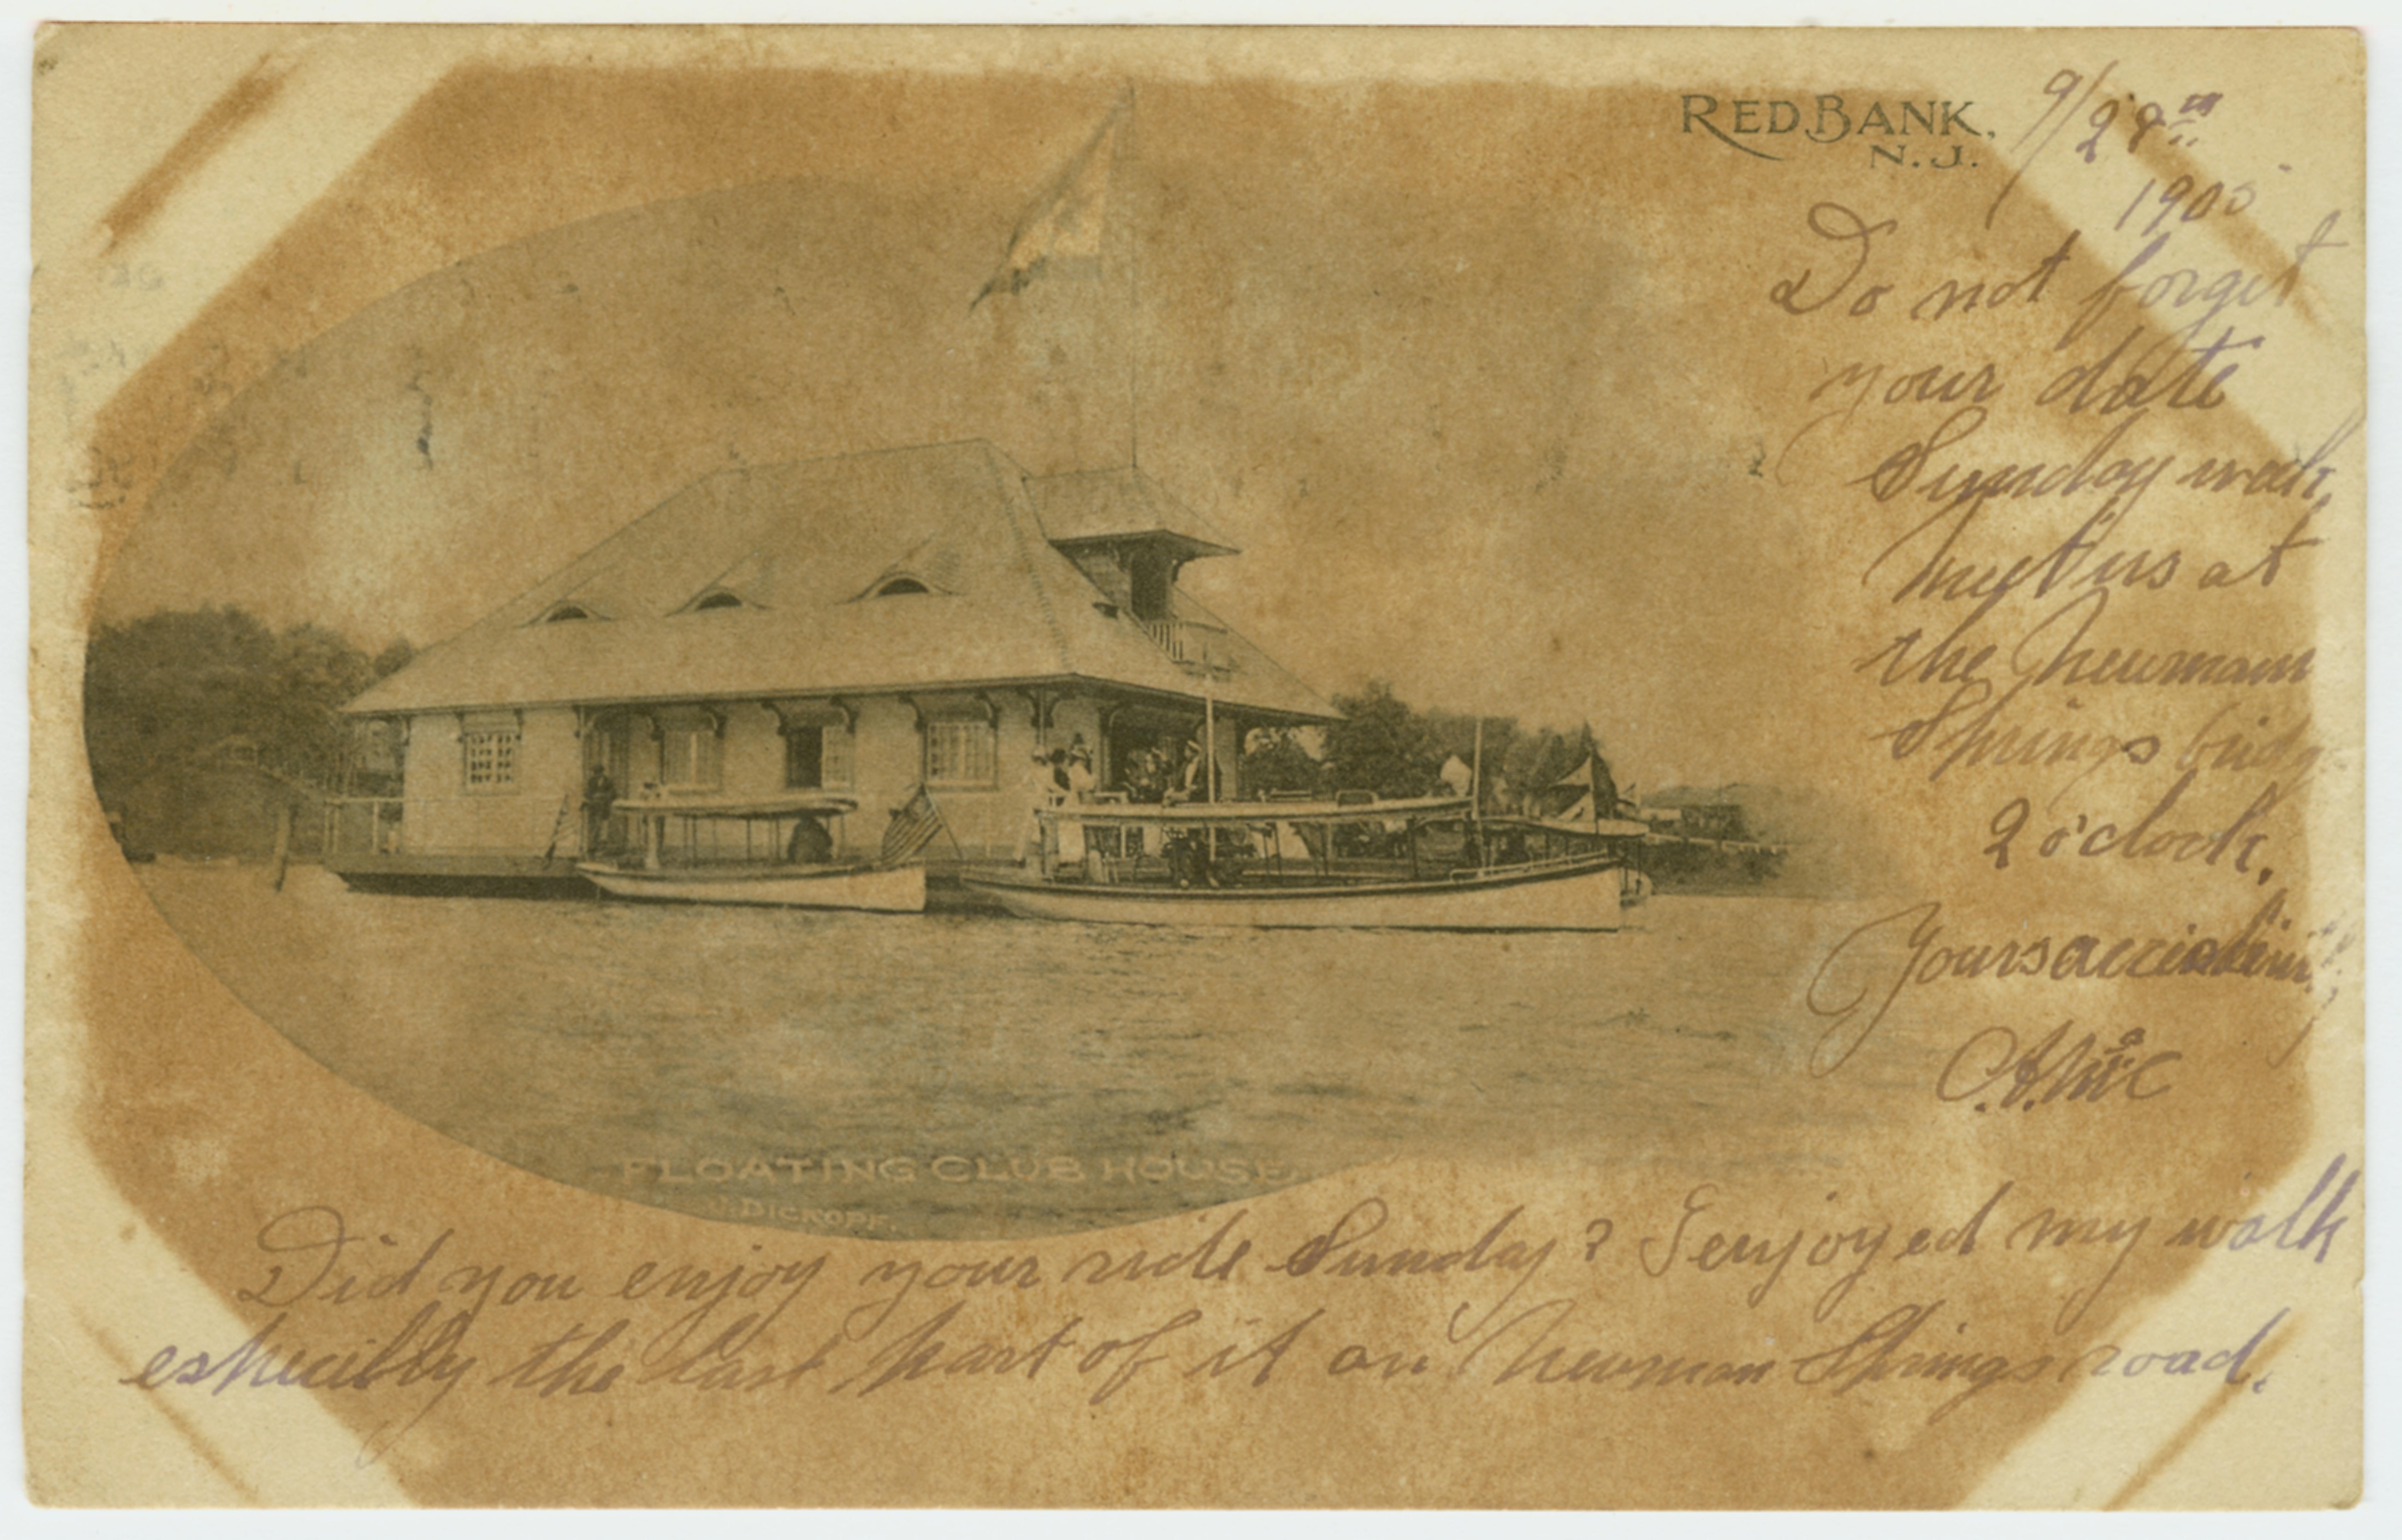 RED BANK,
N.J.
9/28th
1905
Do not forget
your date
Sunday week,
Meet us at
the Newman
Springs bridg
2 o'clock.
Yours
A. McC
FLOATING CLUB HOUSE
J. DICKOPF.
Did you enjoy your ride Sunday? I enjoyed my walk
especilly the last part of it on Newman Springs road.